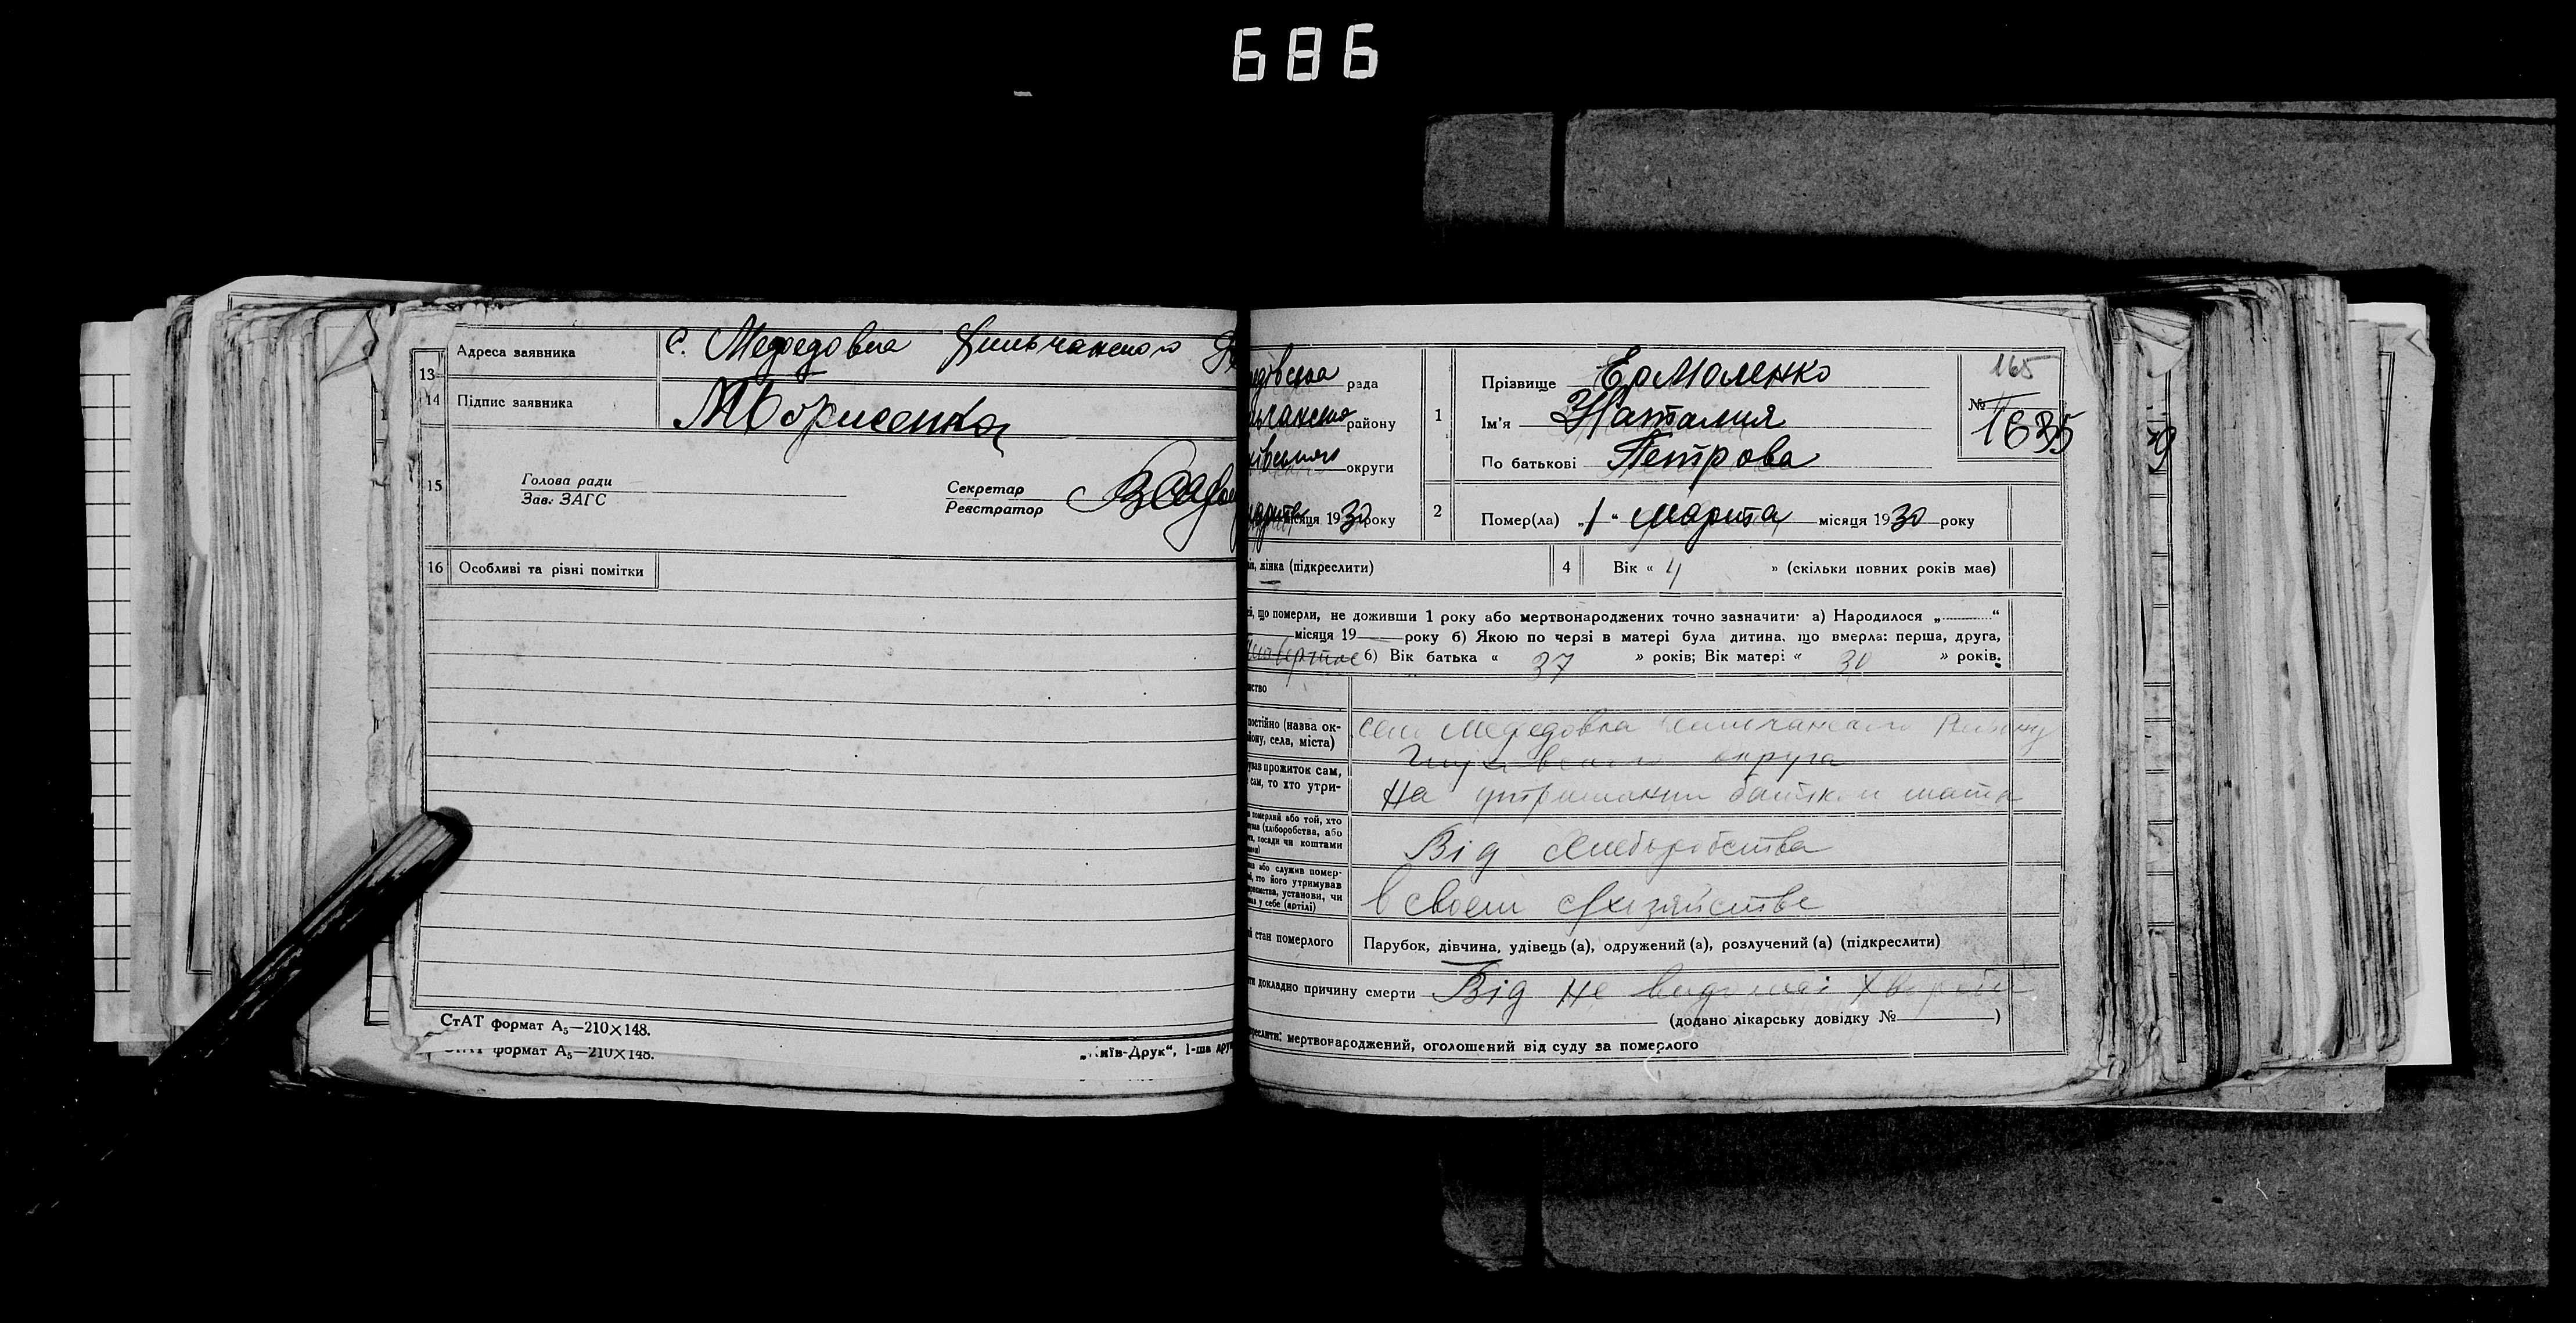 686
13
Адреса заявника
с. Мефедовка
14
Підпис заявника
МБорисенко
15
Голова ради
Зав. ЗАГС
Секретар
Реєстратор
16 Особливі та різні помітки
СтАТ формат А₅—210×148.
СтАТ формат А₅—210×148.
„Київ-Друк“, 1-ша дру
рада
району
округи
місяця 1930 року
1
Прізвище Ермоленко
Ім'я Наталия
По батькові Петрова
165
№
1635
2
Помер(ла) „1“ марта місяця 1930 року
жінка (підкреслити)
4 Вік « 4 » (скільки повних років має)
що померли, не доживши 1 року або мертвонароджених точно зазначити: а) Народилося „ “
місяця 19 року б) Якою по черзі в матері була дитина, що вмерла: перша, друга,
б) Вік батька « 37 » років; Вік матері « 30 » років.
постійно (назва ок-
йону, села, міста)
село Мефедовка
округа
прожиток сам,
сам, то хто утри-
На утриманни батька и мати
померлий або той, хто
(хліборобства, або
посади чи коштами
Від хлеборобства
або служив помер-
хто його утримував
установи, чи
у себе (артілі)
в своем хозяйстве
стан померлого
Парубок, дівчина, удівець (а), одружений (а), розлучений (а) (підкреслити)
докладно причину смерти Від не видомої хвороби
(додано лікарську довідку № )
мертвонароджений, оголошений від суду за померлого